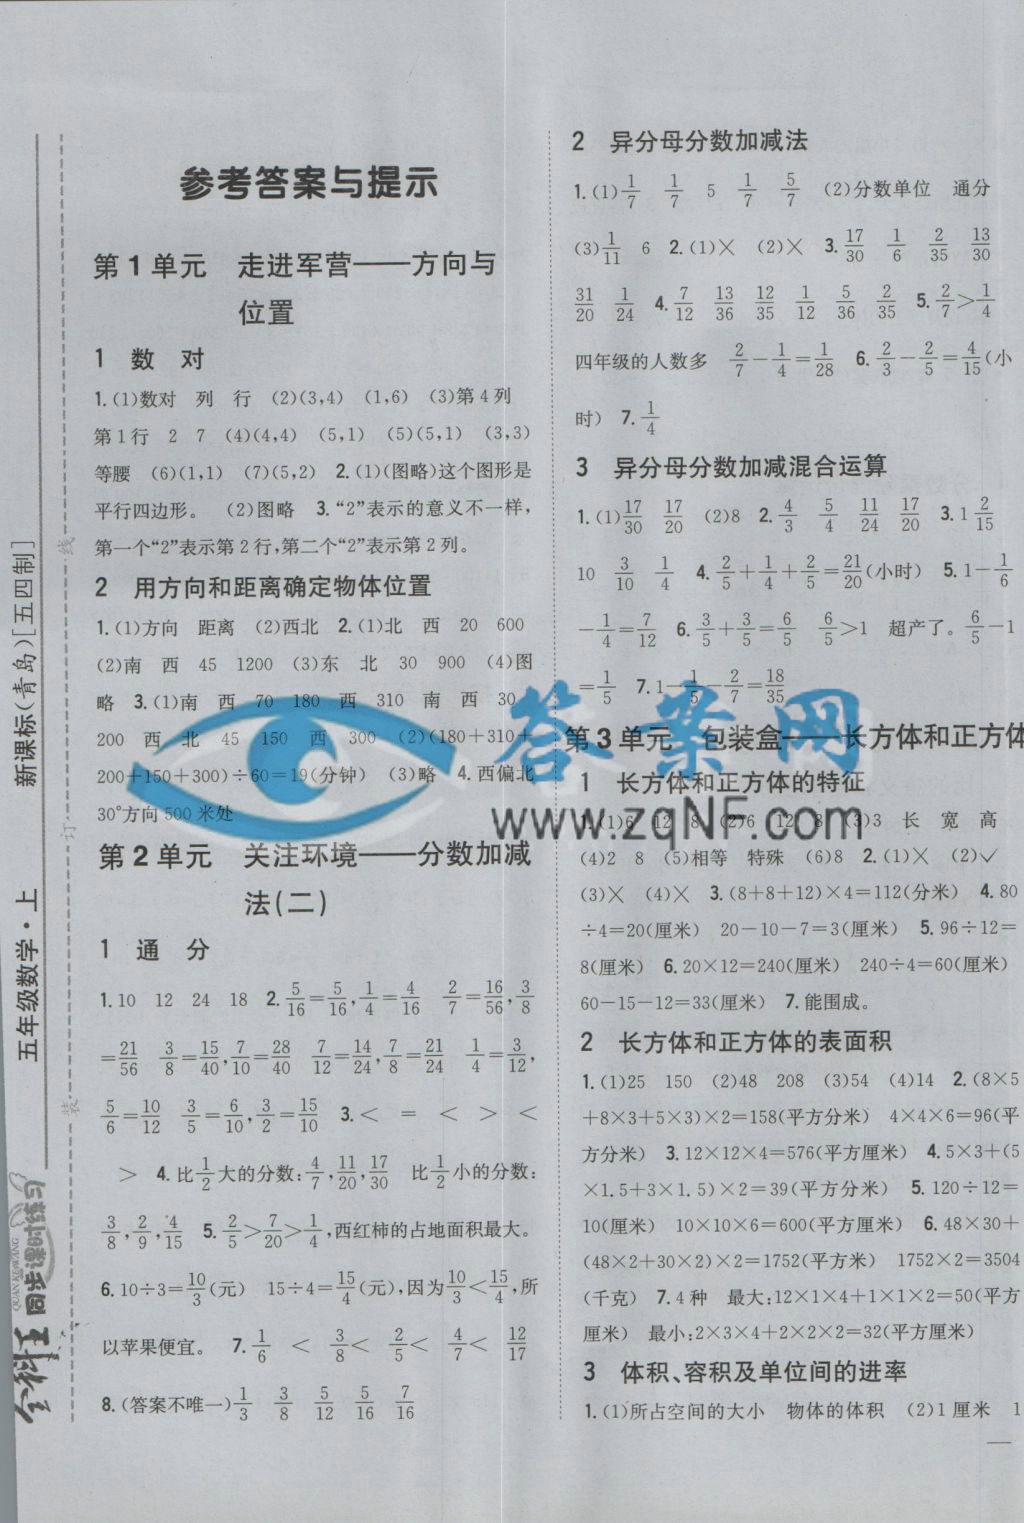 参考答案与提示
第1单元 走进军营——方向与
位置
1 数 对
1.(1)数对 列 行 (2)(3,4) (1,6) (3)第4列
第1行 2 7 (4)(4,4) (5,1) (5)(5,1) (3,3)
等腰 (6)(1,1) (7)(5,2) 2.(1)(图略)这个图形是
平行四边形。 (2)图略 3.“2”表示的意义不一样,
第一个“2”表示第2行,第二个“2”表示第2列。
2 用方向和距离确定物体位置
1.(1)方向 距离 (2)西北 2.(1)北 西 20 600
(2)南 西 45 1200 (3)东 北 30 900 (4)图
略 3.(1)南 西 70 180 西 310 南 西 30
200 西 北 45 150 西 300 (2)(180+310+
200+150+300)÷60=19(分钟) (3)略 4.西偏北
30°方向500米处
第2单元 关注环境——分数加减
法(二)
1 通 分
1.10 12 24 18 2.5/16=5/16,1/4=4/16 2/7=16/56,3/8
=21/56 3/8=15/40,7/10=28/40 7/12=14/24,7/8=21/24 1/4=3/12,
5/6=10/12 3/5=6/10,3/2=15/10 3.< = < > <
> 4.比1/2大的分数:4/7,11/20,17/30 比1/2小的分数:
3/8,2/9,4/15 5.2/5>7/20>1/4,西红柿的占地面积最大。
6.10÷3=10/3(元) 15÷4=15/4(元),因为10/3<15/4,所
以苹果便宜。 7.1/6 < 3/8< 2/5< 4/7< 12/17
8.(答案不唯一)1/3 3/8 5/12 5/16 7/16
2 异分母分数加减法
1.(1)1/7 1/7 5 1/7 5/7 (2)分数单位 通分
(3)1/11 6 2.(1)× (2)× 3.17/30 1/6 2/35 13/30
31/20 1/24 4.7/12 13/36 12/35 1/12 5/36 2/35 5.2/7>1/4
四年级的人数多 2/7-1/4=1/28 6.2/3-2/5=4/15(小
时) 7.1/4
3 异分母分数加减混合运算
1.(1)17/30 17/20 (2)8 2.4/3 5/4 11/24 17/20 3.1 2/15
10 3/10 1/4 4.2/5+1/4+2/5=21/20(小时) 5.1-1/6
-1/4=7/12 6.3/5+3/5=6/5 6/5>1 超产了。6/5-1
=1/5 7.1-1/5-2/7=18/35
第3单元 包装盒——长方体和正方体
1 长方体和正方体的特征
1.(1)6 12 8 (2)6 12 8 (3)3 长 宽 高
(4)2 8 (5)相等 特殊 (6)8 2.(1)× (2)✓
(3)× (4)× 3.(8+8+12)×4=112(分米) 4.80
÷4=20(厘米) 20-10-7=3(厘米) 5.96÷12=
8(厘米) 6.20×12=240(厘米) 240÷4=60(厘米)
60-15-12=33(厘米) 7.能围成。
2 长方体和正方体的表面积
1.(1)25 150 (2)48 208 (3)54 (4)14 2.(8×5
+8×3+5×3)×2=158(平方分米) 4×4×6=96(平
方分米) 3.12×12×4=576(平方厘米) 4.5×3+(5
×1.5+3×1.5)×2=39(平方分米) 5.120÷12=
10(厘米) 10×10×6=600(平方厘米) 6.48×30+
(48×2+30×2)×2=1752(平方米) 1752×2=3504
(千克) 7.4种 最大:12×1×4+1×1×2=50(平方
厘米) 最小:2×3×4+2×2×2=32(平方厘米)
3 体积、容积及单位间的进率
1.(1)所占空间的大小 物体的体积 (2)1厘米 1
答案网
www.zqNF.com
线
订
装
新课标(青岛)[五四制]
五年级数学·上
QUAN KE WANG
全科王 同步课时练习